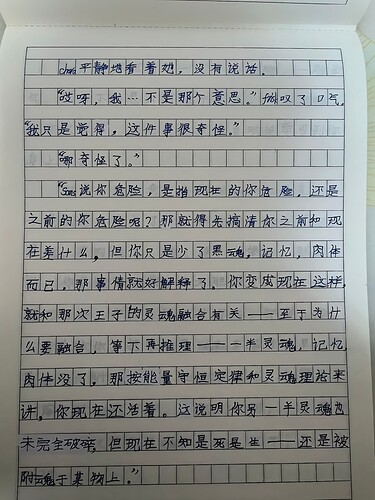 chara平静地看着她，没有说话。
“哎呀，我…不是那个意思。”frisk叹了口气，
“我只是觉得，这件事很夸怪。”
“哪夸怪了。”
“Sans说你危险，是指现在的你危险，还是
之前的你危险呢？那就得先搞清你之前和现
在差什么。但你只是少了黑魂，记忆，肉体
而已，那事情就好解释了。你变成现在这样，
就和那次王子的灵魂融合有关——至于为什
么要融合，等下再推理——一半灵魂，记忆，
肉体没了，那按能量守恒定律和灵魂理论来
讲，你现在还活着。这说明你另一半灵魂也
未完全破碎，但现在不知是死是生——还是被
附魂于某物上。”